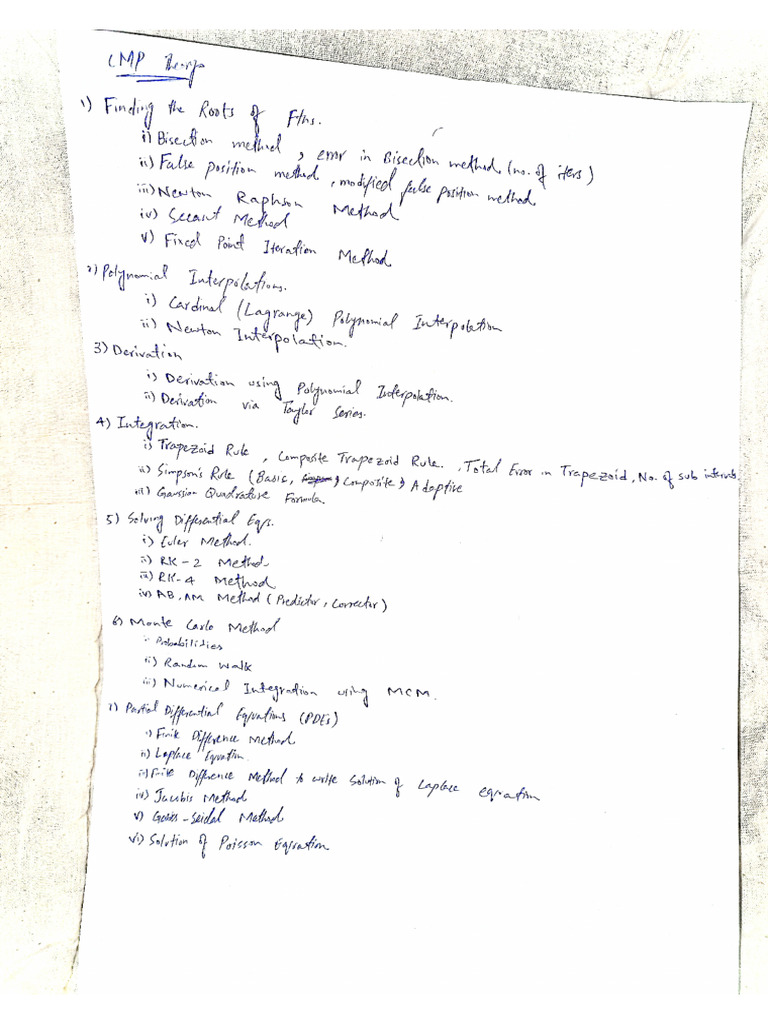 CMP Theory
1) Finding the Roots of Ftns.
i) Bisection method, error in Bisection method (no. of iters)
ii) False position method, modified false position method
iii) Newton Raphson Method
iv) Secant Method
v) Fixed Point Iteration Method
2) Polynomial Interpolations.
i) Cardinal (Lagrange) Polynomial Interpolation
ii) Newton Interpolation.
3) Derivation
i) Derivation using Polynomial Interpolation.
ii) Derivation via Taylor Series.
4) Integration.
i) Trapezoid Rule, Composite Trapezoid Rule., Total Error in Trapezoid, No. of sub intervals
ii) Simpson's Rule (Basic, Composite) Adaptive
iii) Gaussian Quadrature Formula.
5) Solving Differential Eqs.
i) Euler Method.
ii) RK-2 Method
iii) RK-4 Method
iv) AB, AM Method (Predictor, Corrector)
6) Monte Carlo Method
i. Probabilities
ii) Random Walk
iii) Numerical Integration using MCM.
7) Partial Differential Equations (PDEs)
i) Finite Difference Method
ii) Laplace Equation.
iii) Finite Difference Method to write solution of Laplace equation
iv) Jacobis Method
v) Gauss-Seidal Method
vi) Solution of Poisson Equation